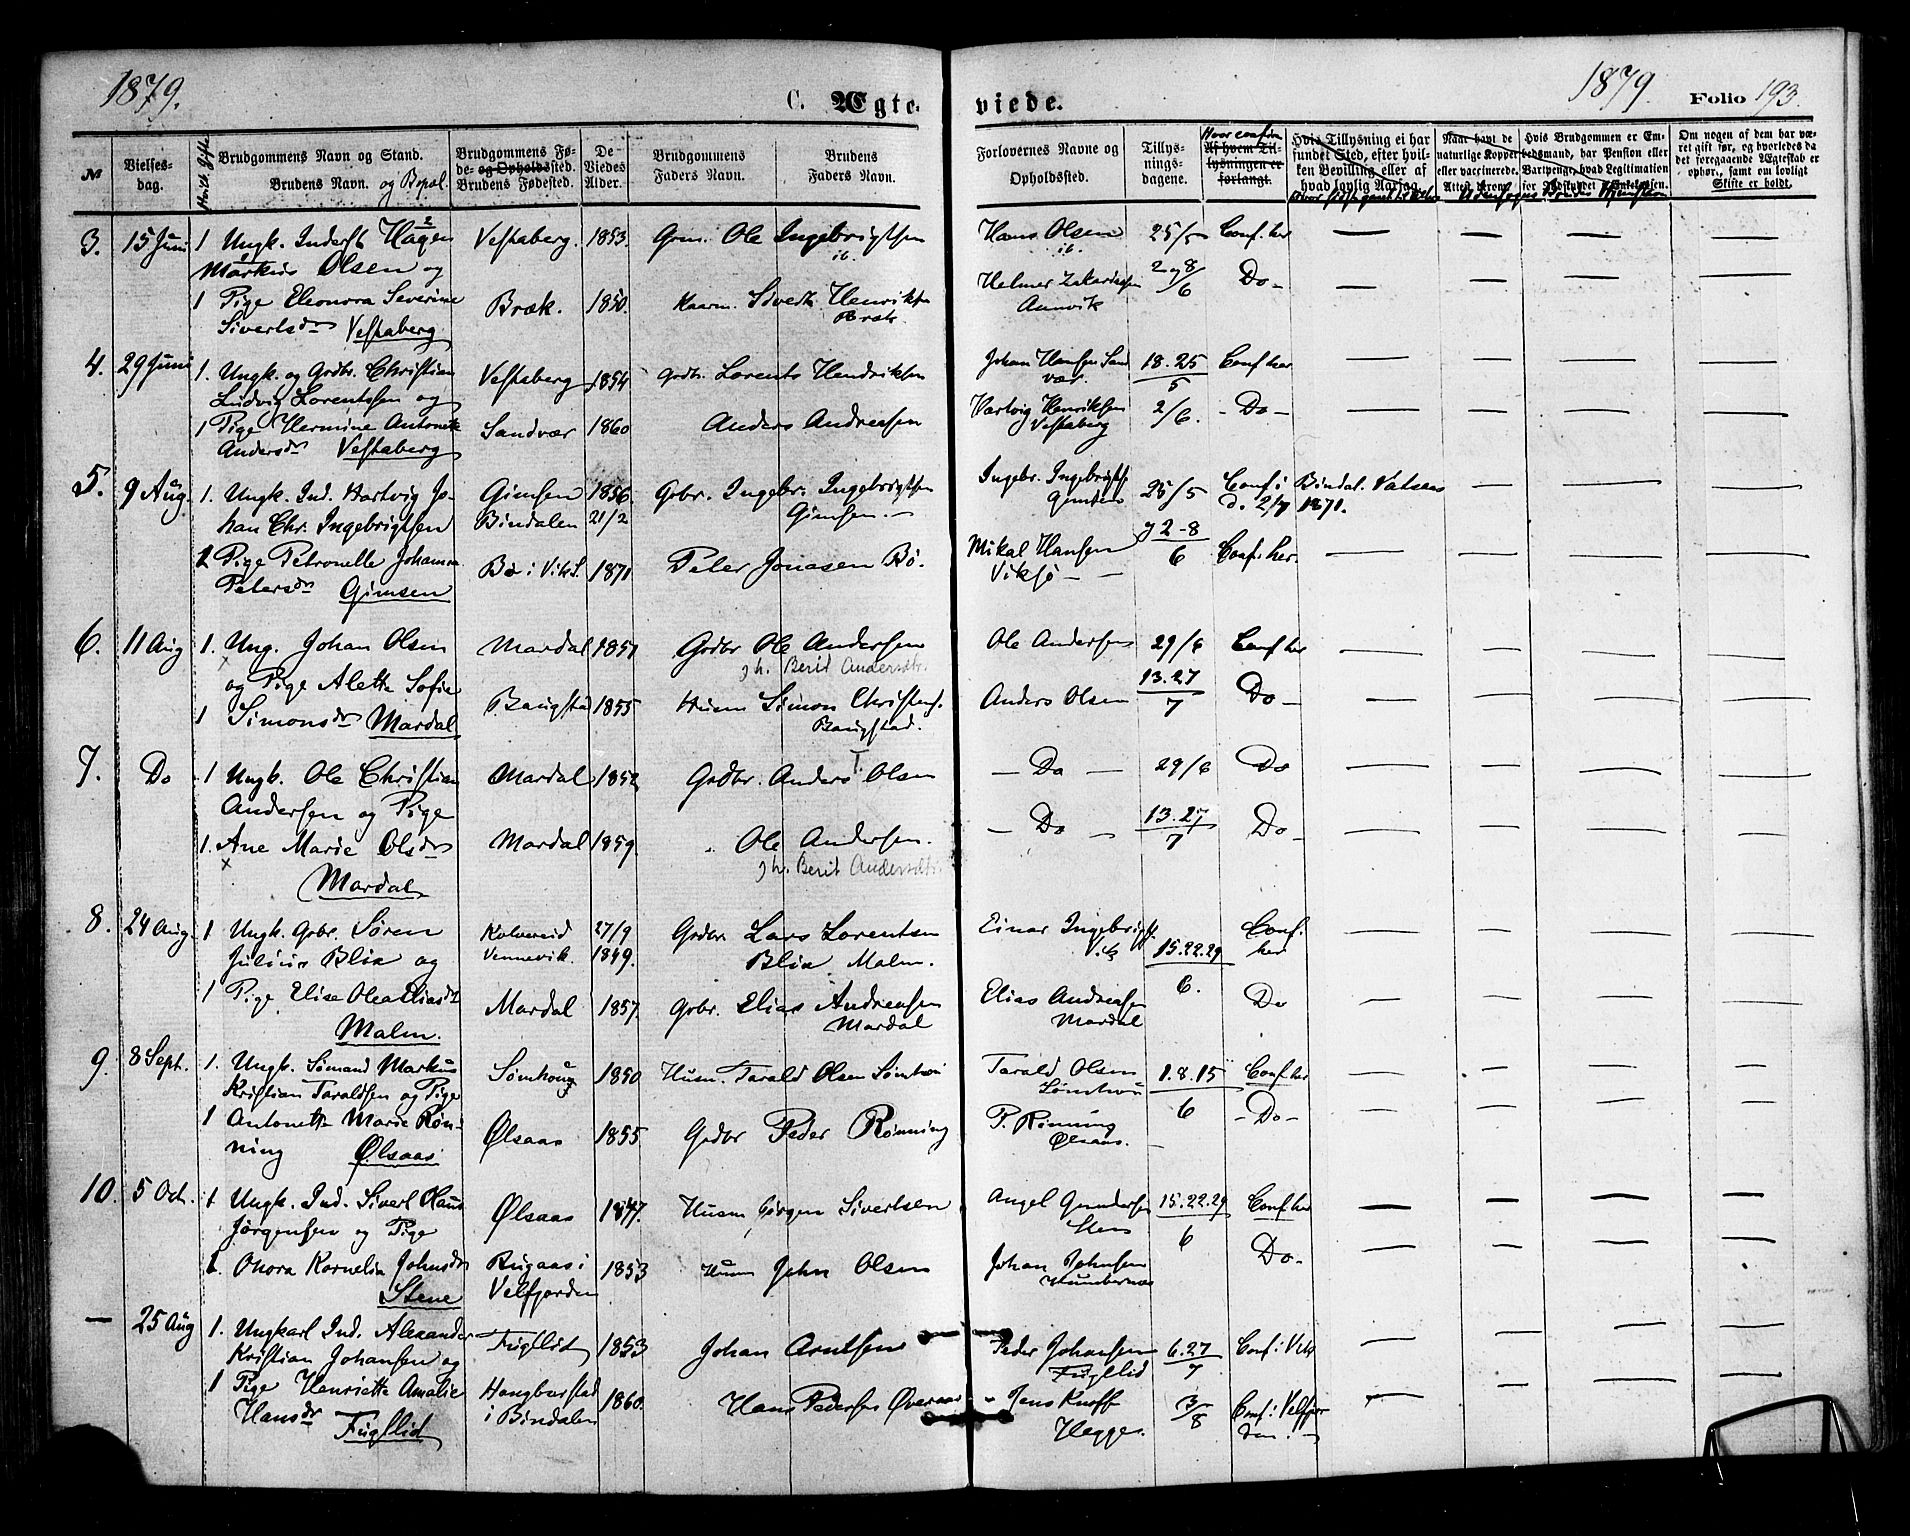 1879.
C. Ægte-
viede.
1879.
Folio 193.
№
Vielses-
dag.
Brudgommens Navn og Stand.
Brudens Navn. og Bopæl.
Brudgommens Fø-
de- og Opholdssted.
Brudens Fødested.
De
Viedes
Alder.
Brudgommens
Faders Navn.
Brudens
Faders Navn.
Forlovernes Navne og
Opholdssted.
Tillys-
nings-
dagene.
Af hvem Til-
lysningen er
forlangt.
Hvis Tillysning ei har
fundet Sted, efter hvil-
ken Bevilling eller af
hvad lovlig Aarsag.
Naar havt de
naturlige Kopper
eller vaccinerede.
Attest herom.
Hvis Brudgommen er Em-
bedsmand, har Pension eller
Vartpenge, hvad Legitimation
Om nogen af dem har væ-
ret gift før, og hvorledes da
det foregaaende Ægteskab er
ophør., samt om lovligt
Skifte er holdt.
3. 15 Juni 1 Ungk. Inderst Hagen Vestaberg. 1853. Grm. Ole Ingebrigtsen Hans Olsen 25/5 Conf. her
Markus Olsen og ib. ib.
1 Pige Eleonora Severine Bræk. 1850. Sivert Henriksen Helmer Zakariassen 2 og 8/6 Do
Sivertsdr Vestaberg Aunvik
4. 29 Juni 1. Ungk. og Grdbr. Christian Vestaberg 1854 Grdbr. Lorents Hendriksen Johan Hansen Sand 18. 25/5 Conf her
Ludvig Lorentssen og vær.
1 Pige Hermine Antonette Sandvær 1860 Anders Andreasen Hartvig Henriksen 2/6. - Do -
Andersdr Vestaberg Vestaberg
5. 9 Aug. 1. Ungk. Ind. Hartvig Jo- Gimsen 1856. Grbr. Ingebr. Ingebrigtsen Ingebr. Ingebrigts 25/5 Conf i Bindal. Vatsaas
han Chr. Ingebrigtsen Bindalen 21/2 Gimsen. Gimsen d. 2/7 1871.
1 Pige Petronelle Johanna Bø i Vik S. 1871 Peter Jonasen Bø. Mikal Hansen 2-8/6 Conf. her.
Petersdr Gimsen Viksjø
6. 11 Aug 1. Ung. Johan Olsen Mardal 1851 Grdbr Ole Andersen Ole Andersens 29/6 Conf her
g.h. Berit Andersdtr.
og Pige Alette Sofie Baugstad 1855 Husm Simon Christens. Anders Olsen 13. 27/7 Do
1 Simonsdr Mardal Baugstad.
7. Do 1 Ungk. Ole Christian Mardal 1852 Grdbr. Anders T. Olsen Do 29/6 Do
Andersen og Pige
1. Ane Marie Olsdr Mardal 1859. Ole Andersen. Do 13. 27/7 Do
g.h. Berit Andersdtr.
Mardal
8. 24 Aug. 1 Ungk. Grbr. Søren Kolvereid 27/9 Grdbr. Lars Lorentsen Einar Ingebrigts. Conf.
Julius Blix og Vennevik. 1849. Blix. Malm. Vik 15.22.29/6. her
1 Pige Elise Olea Eliasdr Mardal 1857. Grbr. Elias Andreasen Elias Andreasen Do
Malm. Mardal Mardal
9. 8 Sept. 1. Ungk. Sømand Markus Sømhoug 1850 Husm. Tarald Olsen Sømhou Tarald Olsen 1.8.15/6 Conf her
Kristian Taraldsen og Pige Sømhou
1 Antonette Marie Røn- Ølsaas 1855 Grdbr Peder Rønning P. Rønning - Do -
ning Ølsaas Ølsaas.
10. 5 Oct. 1 Ungk. Ind. Sivert Hans Ølsaas 1847. Husm Jørgen Sivertsen Angel Gundersen 15.22.29/6 Conf her
Jørgensen og Pige Stens
1. Onora Kornelia Johnsdr Bugaas i 1853 Husm John Olsen Johan Johnsen Do
Stene Velfjorden
— 25 Aug 1. Ungkarl Ind. Alexander Fugllid 1853 Johan Arntsen Peder Johansen 6.27/7 Conf i Vik
Kristian Johansen og Fugllid
1 Pige Henriette Amalie 1860. Hans Pedersen Jens Knoff 3/8 Conf: i Velfjor
Hansdr Fugllid i Bindalen Hegge. den.